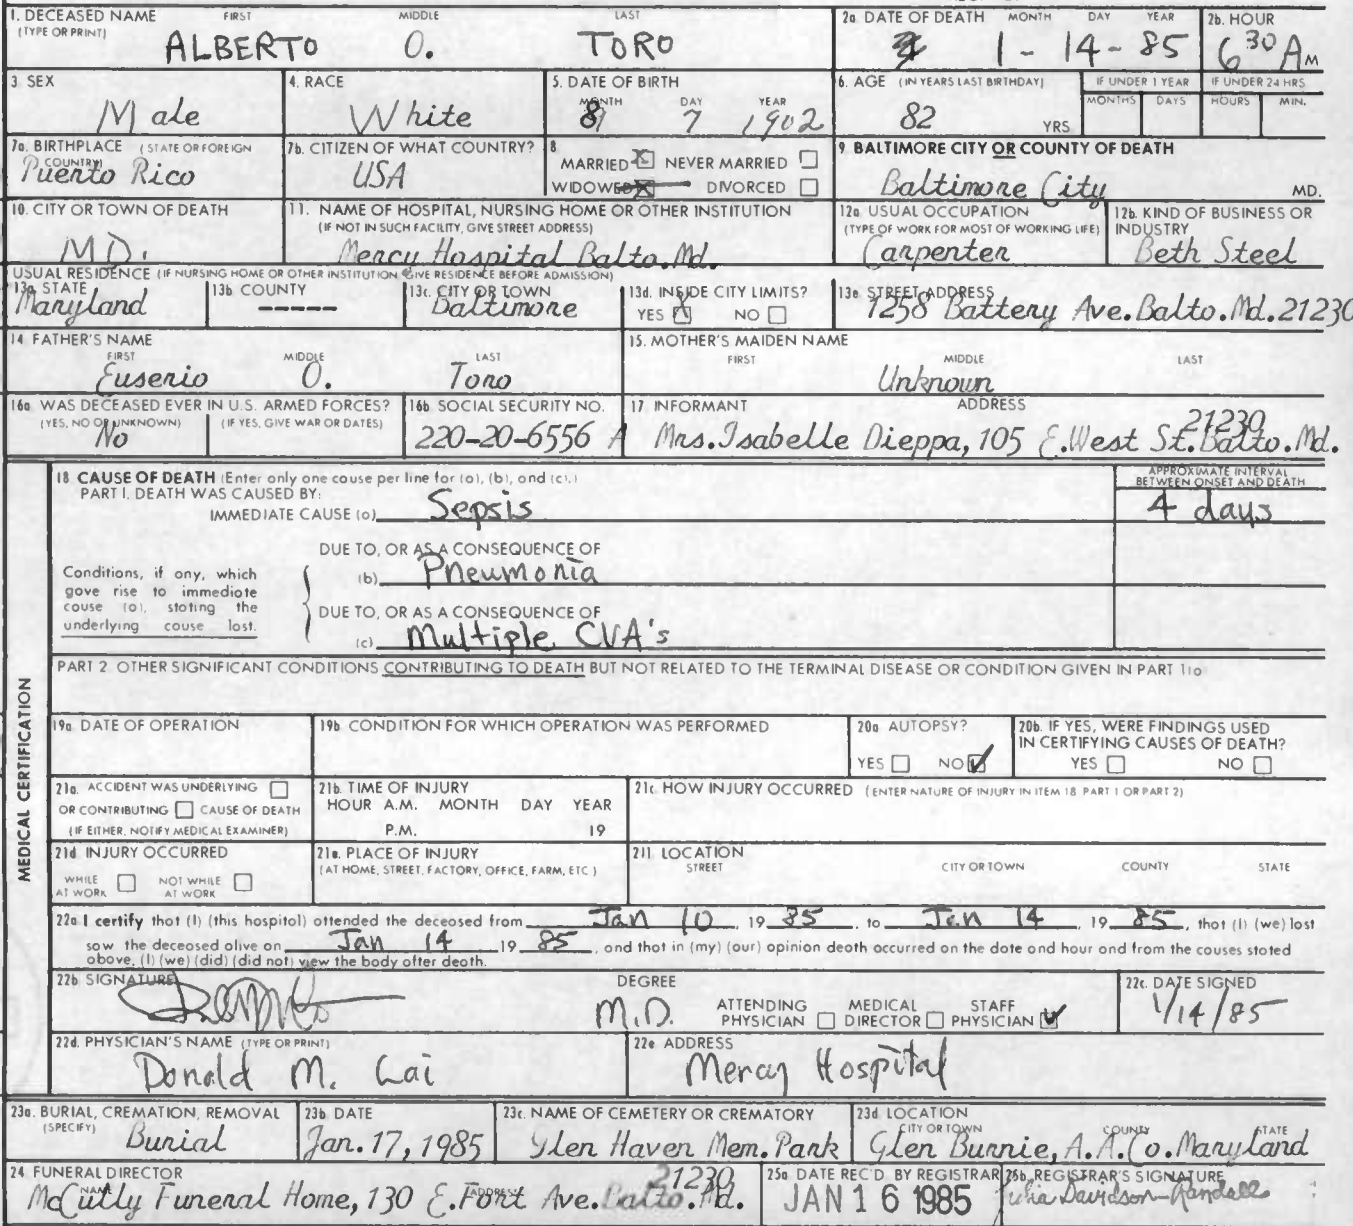 1. DECEASED NAME FIRST MIDDLE LAST
(TYPE OR PRINT)
ALBERTO O. TORO
2a. DATE OF DEATH MONTH DAY YEAR
1-14-85
2b. HOUR
6 30 A M
3. SEX
Male
4. RACE
White
5. DATE OF BIRTH
MONTH DAY YEAR
8 7 1902
6. AGE (IN YEARS LAST BIRTHDAY)
82 YRS
IF UNDER 1 YEAR
MONTHS DAYS
IF UNDER 24 HRS
HOURS MIN.
7a. BIRTHPLACE (STATE OR FOREIGN
COUNTRY)
Puerto Rico
7b. CITIZEN OF WHAT COUNTRY?
USA
8
MARRIED X NEVER MARRIED
WIDOWED DIVORCED
9. BALTIMORE CITY OR COUNTY OF DEATH
Baltimore City MD.
10. CITY OR TOWN OF DEATH
MD.
11. NAME OF HOSPITAL, NURSING HOME OR OTHER INSTITUTION
(IF NOT IN SUCH FACILITY, GIVE STREET ADDRESS)
Mercy Hospital Balto. Md.
12a. USUAL OCCUPATION
(TYPE OF WORK FOR MOST OF WORKING LIFE)
Carpenter
12b. KIND OF BUSINESS OR
INDUSTRY
Beth Steel
USUAL RESIDENCE (IF NURSING HOME OR OTHER INSTITUTION GIVE RESIDENCE BEFORE ADMISSION)
13a. STATE
Maryland
13b COUNTY
-----
13c. CITY OR TOWN
Baltimore
13d. INSIDE CITY LIMITS?
YES X NO
13e. STREET ADDRESS
1258 Battery Ave. Balto. Md. 21230
14. FATHER'S NAME
FIRST MIDDLE LAST
Euserio O. Toro
15. MOTHER'S MAIDEN NAME
FIRST MIDDLE LAST
Unknown
16a WAS DECEASED EVER IN U.S. ARMED FORCES?
(YES, NO OR UNKNOWN) (IF YES, GIVE WAR OR DATES)
No
16b SOCIAL SECURITY NO.
220-20-6556 A
17 INFORMANT ADDRESS
21230
Mrs. Isabelle Dieppa, 105 E. West St. Balto. Md.
MEDICAL CERTIFICATION
18 CAUSE OF DEATH (Enter only one cause per line for (a), (b), and (c).)
PART I. DEATH WAS CAUSED BY:
APPROXIMATE INTERVAL
BETWEEN ONSET AND DEATH
IMMEDIATE CAUSE (a) Sepsis 4 days
DUE TO, OR AS A CONSEQUENCE OF
(b) Pneumonia
Conditions, if any, which
gave rise to immediate
cause (a), stating the
underlying cause last.
DUE TO, OR AS A CONSEQUENCE OF
(c) Multiple CVA's
PART 2 OTHER SIGNIFICANT CONDITIONS CONTRIBUTING TO DEATH BUT NOT RELATED TO THE TERMINAL DISEASE OR CONDITION GIVEN IN PART 1(a)
19a. DATE OF OPERATION
19b CONDITION FOR WHICH OPERATION WAS PERFORMED
20a AUTOPSY?
YES NO ✓
20b. IF YES, WERE FINDINGS USED
IN CERTIFYING CAUSES OF DEATH?
YES NO
21a. ACCIDENT WAS UNDERLYING
OR CONTRIBUTING CAUSE OF DEATH
(IF EITHER, NOTIFY MEDICAL EXAMINER)
21b. TIME OF INJURY
HOUR A.M. MONTH DAY YEAR
P.M. 19
21c. HOW INJURY OCCURRED (ENTER NATURE OF INJURY IN ITEM 18 PART 1 OR PART 2)
21d INJURY OCCURRED
WHILE AT WORK NOT WHILE AT WORK
21e. PLACE OF INJURY
(AT HOME, STREET, FACTORY, OFFICE, FARM, ETC)
21f LOCATION
STREET CITY OR TOWN COUNTY STATE
22a I certify that (I) (this hospital) attended the deceased from Jan 10, 19 85 to Jan 14, 19 85, that (I) (we) last
saw the deceased alive on Jan 14 19 85, and that in (my) (our) opinion death occurred on the date and hour and from the causes stated
above, (I) (we) (did) (did not) view the body after death.
22b SIGNATURE
DEGREE
M.D. ATTENDING PHYSICIAN MEDICAL DIRECTOR STAFF PHYSICIAN ✓
22c. DATE SIGNED
1/14/85
22d. PHYSICIAN'S NAME (TYPE OR PRINT)
Donald M. Lai
22e ADDRESS
Mercy Hospital
23a. BURIAL, CREMATION, REMOVAL
(SPECIFY)
Burial
23b DATE
Jan. 17, 1985
23c. NAME OF CEMETERY OR CREMATORY
Glen Haven Mem. Park
23d LOCATION
CITY OR TOWN COUNTY STATE
Glen Burnie, A.A. Co. Maryland
24 FUNERAL DIRECTOR
NAME ADDRESS
21230
McCully Funeral Home, 130 E. Fort Ave. Balto. Md.
25a DATE REC'D BY REGISTRAR
JAN 16 1985
25b. REGISTRAR'S SIGNATURE
Julia Davidson-Randall